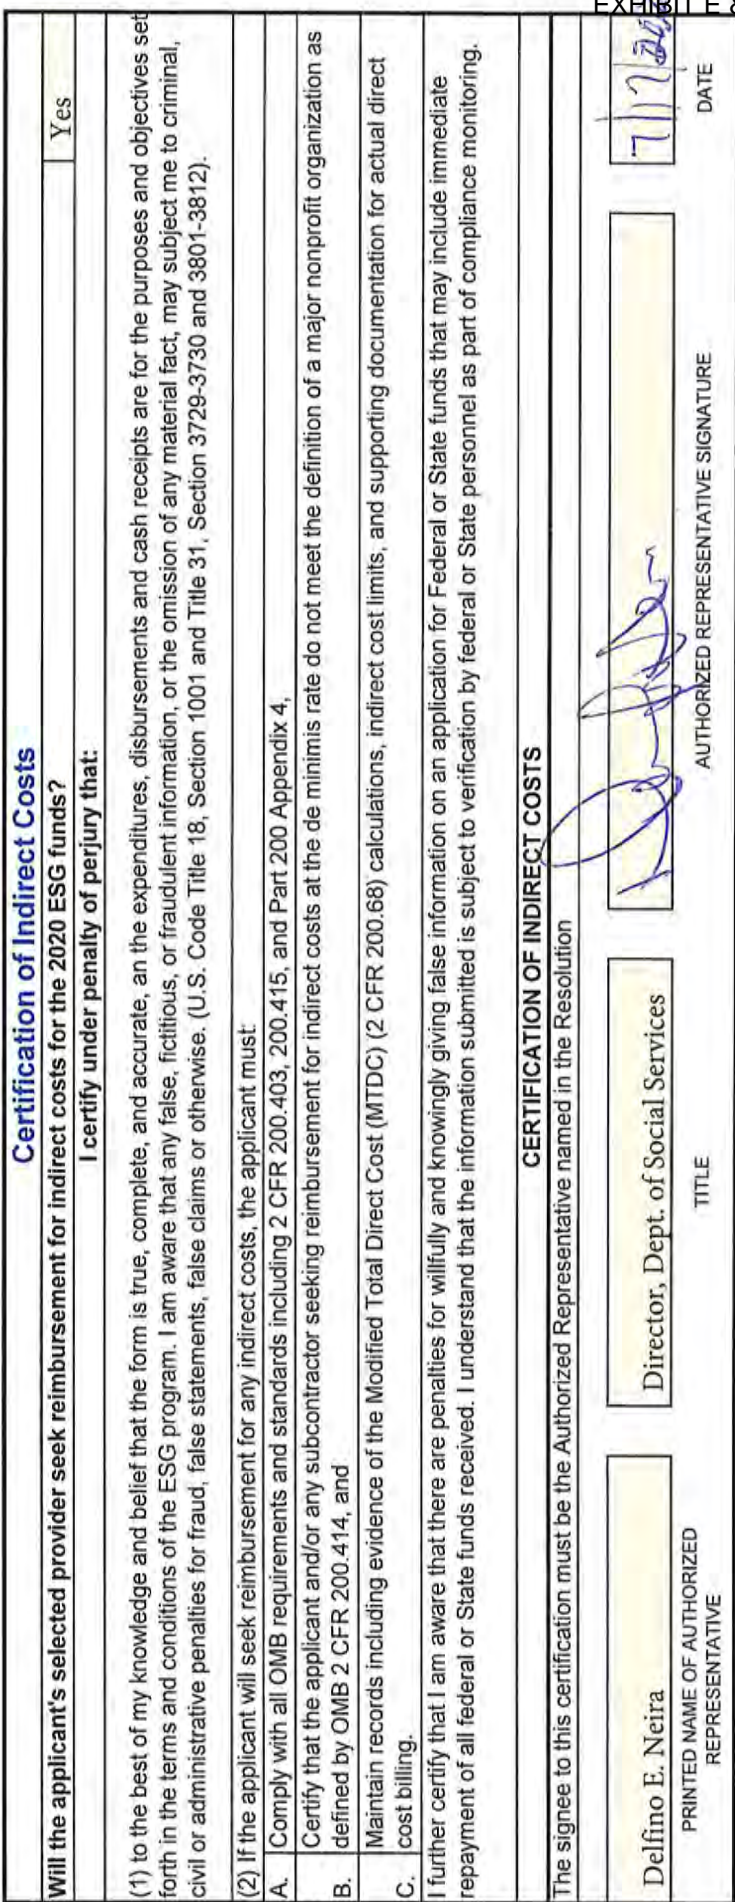 EXHIBIT E
Certification of Indirect Costs
Will the applicant's selected provider seek reimbursement for indirect costs for the 2020 ESG funds?
Yes
I certify under penalty of perjury that:
(1) to the best of my knowledge and belief that the form is true, complete, and accurate, an the expenditures, disbursements and cash receipts are for the purposes and objectives set
forth in the terms and conditions of the ESG program. I am aware that any false, fictitious, or fraudulent information, or the omission of any material fact, may subject me to criminal,
civil or administrative penalties for fraud, false statements, false claims or otherwise. (U.S. Code Title 18, Section 1001 and Title 31, Section 3729-3730 and 3801-3812).
(2) If the applicant will seek reimbursement for any indirect costs, the applicant must:
A. Comply with all OMB requirements and standards including 2 CFR 200.403, 200.415, and Part 200 Appendix 4,
B. Certify that the applicant and/or any subcontractor seeking reimbursement for indirect costs at the de minimis rate do not meet the definition of a major nonprofit organization as
defined by OMB 2 CFR 200.414, and
C. Maintain records including evidence of the Modified Total Direct Cost (MTDC) (2 CFR 200.68) calculations, indirect cost limits, and supporting documentation for actual direct
cost billing.
I further certify that I am aware that there are penalties for willfully and knowingly giving false information on an application for Federal or State funds that may include immediate
repayment of all federal or State funds received. I understand that the information submitted is subject to verification by federal or State personnel as part of compliance monitoring.
CERTIFICATION OF INDIRECT COSTS
The signee to this certification must be the Authorized Representative named in the Resolution
Delfino E. Neira
Director, Dept. of Social Services
7/17/
PRINTED NAME OF AUTHORIZED
REPRESENTATIVE
TITLE
AUTHORIZED REPRESENTATIVE SIGNATURE
DATE